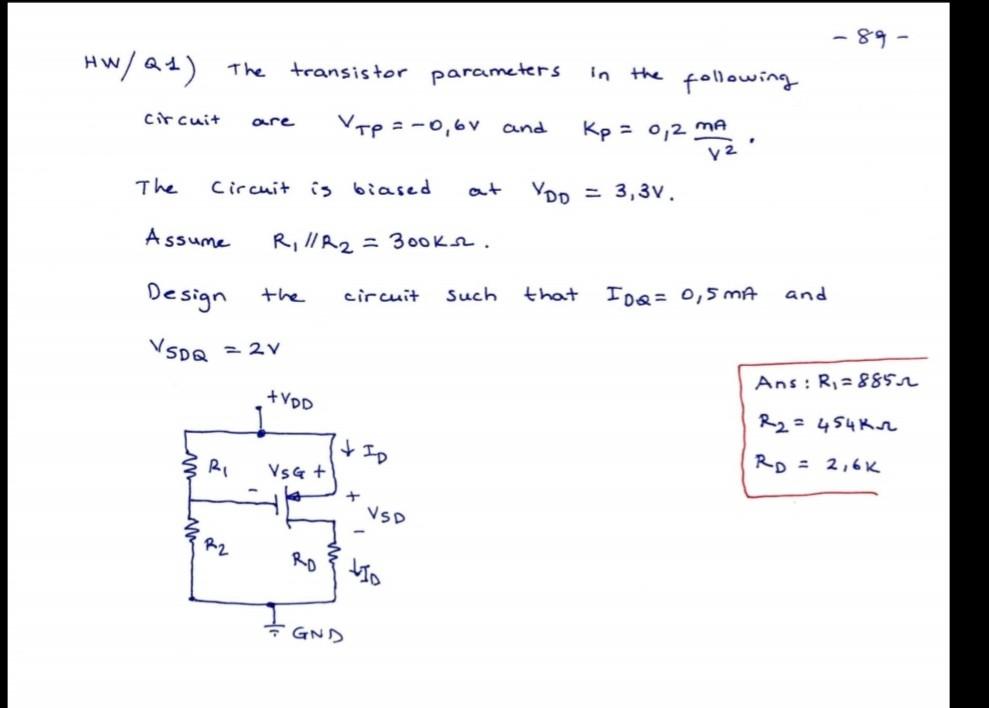 - 89 -
HW/Q1) The transistor parameters in the following
circuit are VTP = -0,6V and Kp = 0,2 mA/V².
The circuit is biased at VDD = 3,3V.
Assume R1//R2 = 300KΩ.
Design the circuit such that IDQ = 0,5mA and
VSDQ = 2V
Ans: R1 = 885Ω
R2 = 454KΩ
RD = 2,6K
+VDD
↓ ID
R1 VSG +
-
+
VSD
-
R2
RD ↓ID
GND